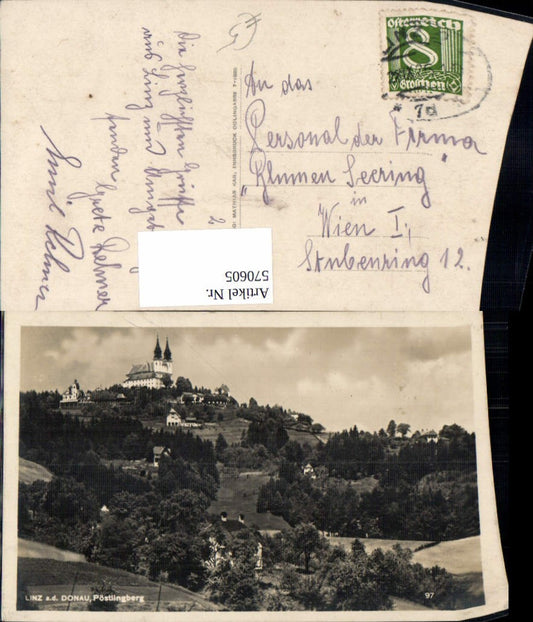 Die herzlichsten Grüße
und
senden Grete Rehmer
Emil Rehmer
MATHIAS KAR, INNSBRUCK
Österreich
8
Groschen
7d
An das
Personal der Firma
"Blumen Seering"
in
Wien I,
Stubenring 12.
Artikel Nr.
570605
LINZ a.d. DONAU, Pöstlingberg
97